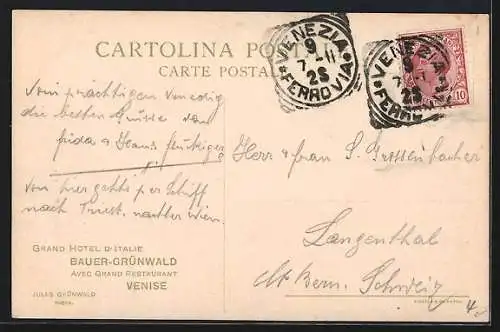 CARTOLINA POSTALE
CARTE POSTALE
VENEZIA
9
7-11
2S
FERROVIA
VENEZIA
9
7-11
2S
FERROVIA
10
Vom prächtigen Venedig
die besten Grüsse von
Frida & Hans Flückiger
Von hier gehts per Schiff
nach Triest. nachher Wien.
Herr & Frau S. Grossenbacher
Langenthal
Ct. Bern. Schweiz
GRAND HOTEL D'ITALIE
BAUER-GRÜNWALD
AVEC GRAND RESTAURANT
VENISE
JULES GRÜNWALD
4